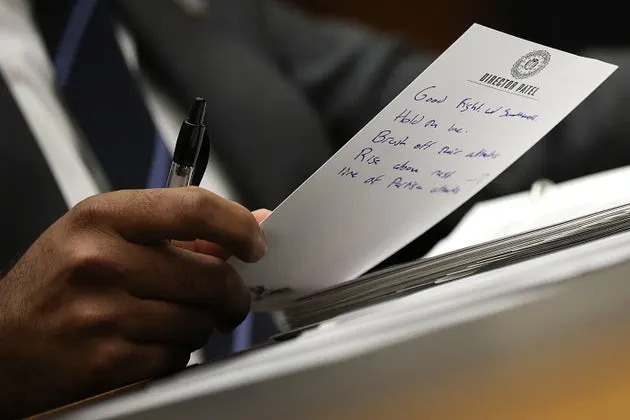 DIRECTOR PATEL
Good Fight w/ Swalwell
Hold the line.
Brush off their attacks
Rise above next
line of partisan attacks